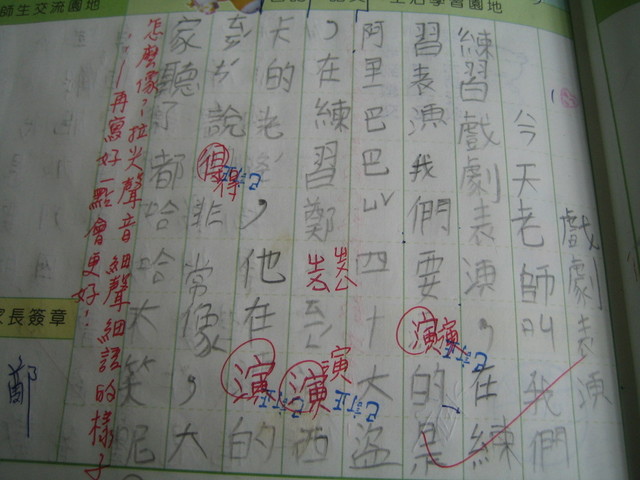 生活學習園地
戲劇表演
今天老師叫我們
練習戲劇表演，在練
習表演我們要演的是
阿里巴巴ㄩˇ四十大盜
，在練習鄭演西
卡的老，他在演的
說得非常像，大
家聽了都哈哈大笑呢
怎麼像？拉尖聲音細聲細語的樣子
再寫好一點會更好！
師生交流園地
家長簽章
鄭